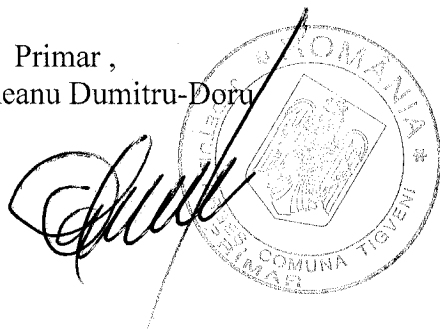 Primar ,
eanu Dumitru-Doru
ROMÂNIA *
COMUNA TIGVENI
PRIMAR